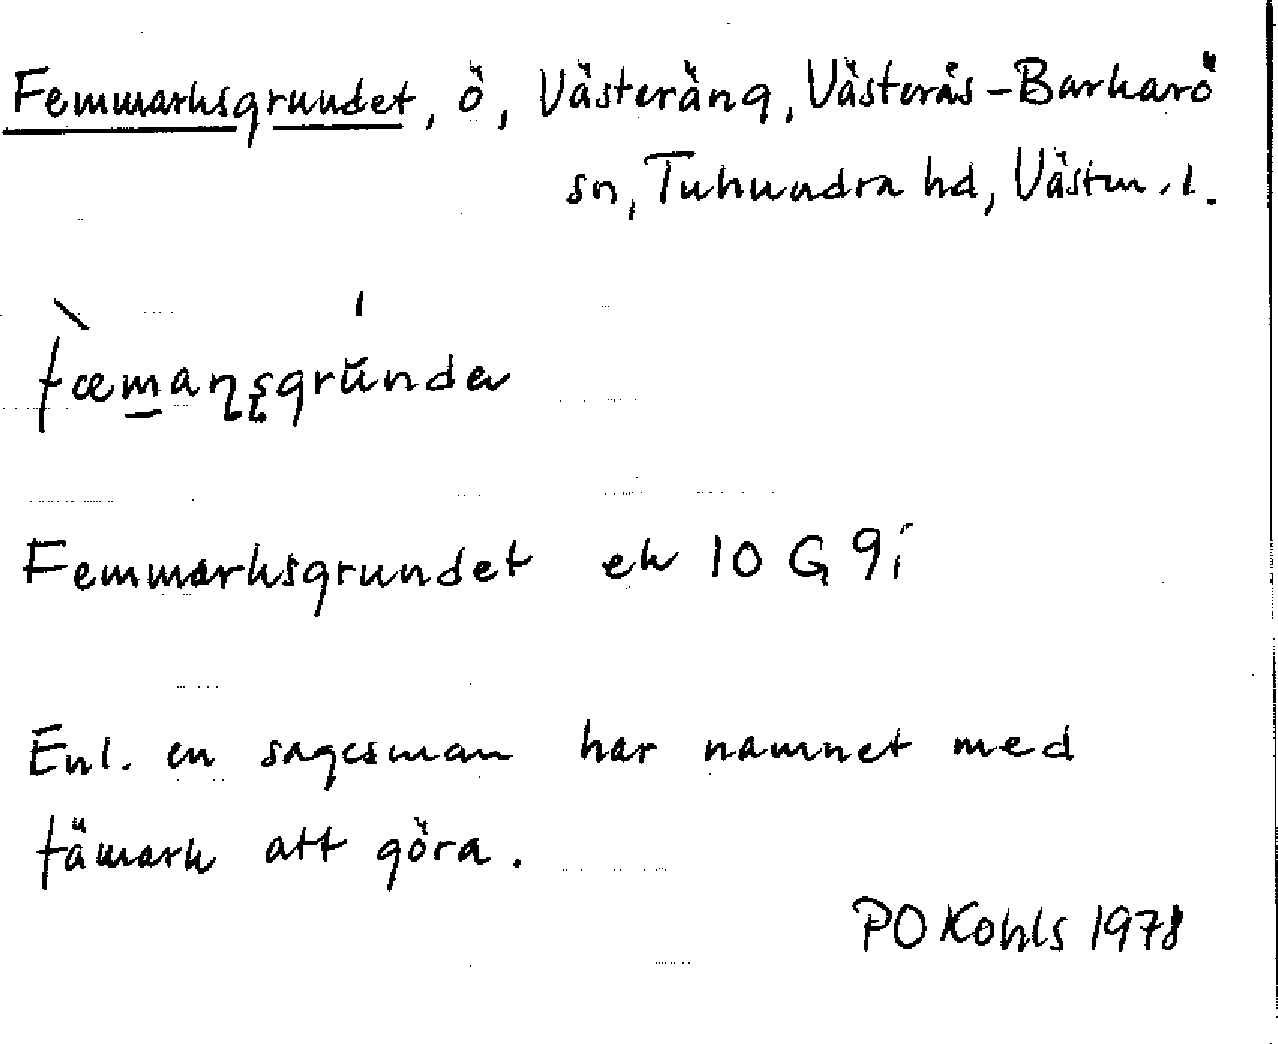 Femmarksgrundet, ö, Västeräng, Västerås-Barkarö
sn, Tuhundra hd, Västm.l.
Femmarksgrundet ek 10 G 9i
Enl. en sagesman har namnet med
fämark att göra.
PO Kohls 1978